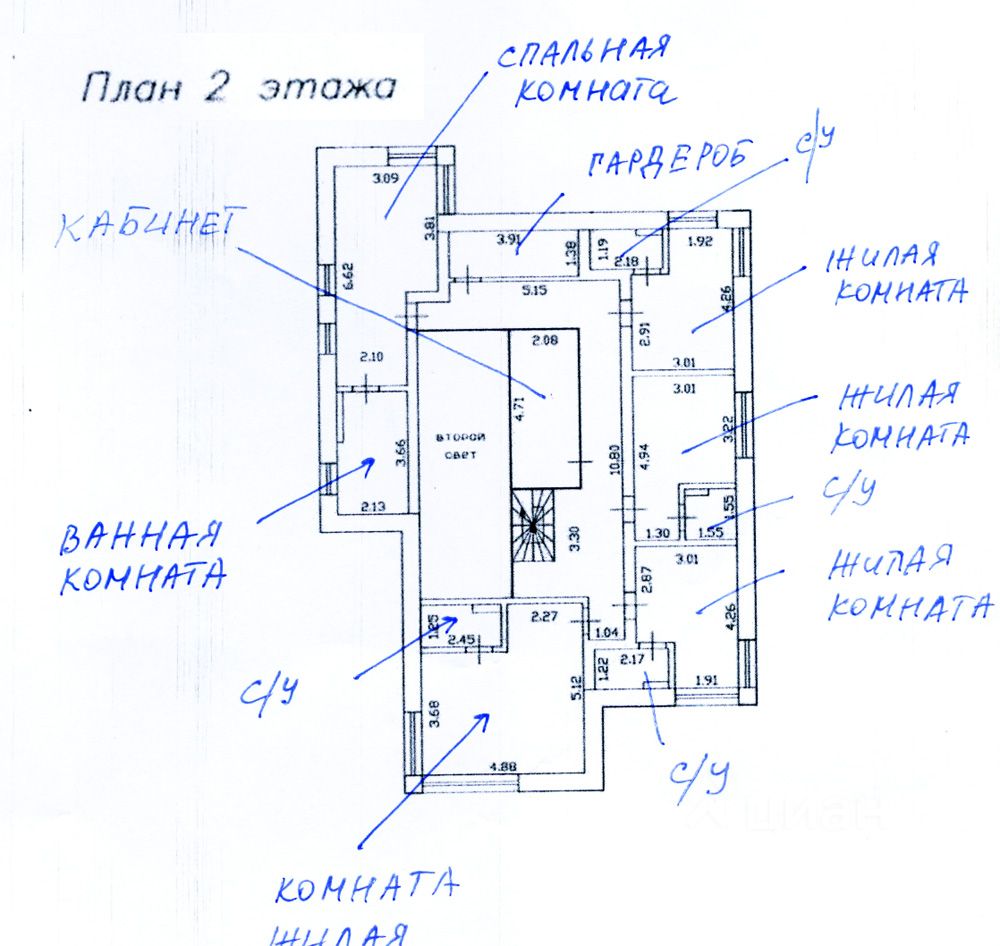 План 2 этажа
СПАЛЬНАЯ
КОМНАТА
ГАРДЕРОБ
С/У
КАБИНЕТ
3.09
3.81
3.91
1.38
1.19
2.18
1.92
ЖИЛАЯ
КОМНАТА
6.62
5.15
4.26
2.91
2.10
2.08
3.01
3.01
ЖИЛАЯ
КОМНАТА
4.71
3.22
ВТОРОЙ
СВЕТ
3.66
10.80
4.94
С/У
2.13
1.55
1.30
1.55
ВАННАЯ
КОМНАТА
3.30
3.01
ЖИЛАЯ
КОМНАТА
2.87
4.26
1.25
2.45
2.27
1.04
С/У
1.22
2.17
1.91
5.12
3.68
4.88
С/У
циан
КОМНАТА
ЖИЛАЯ